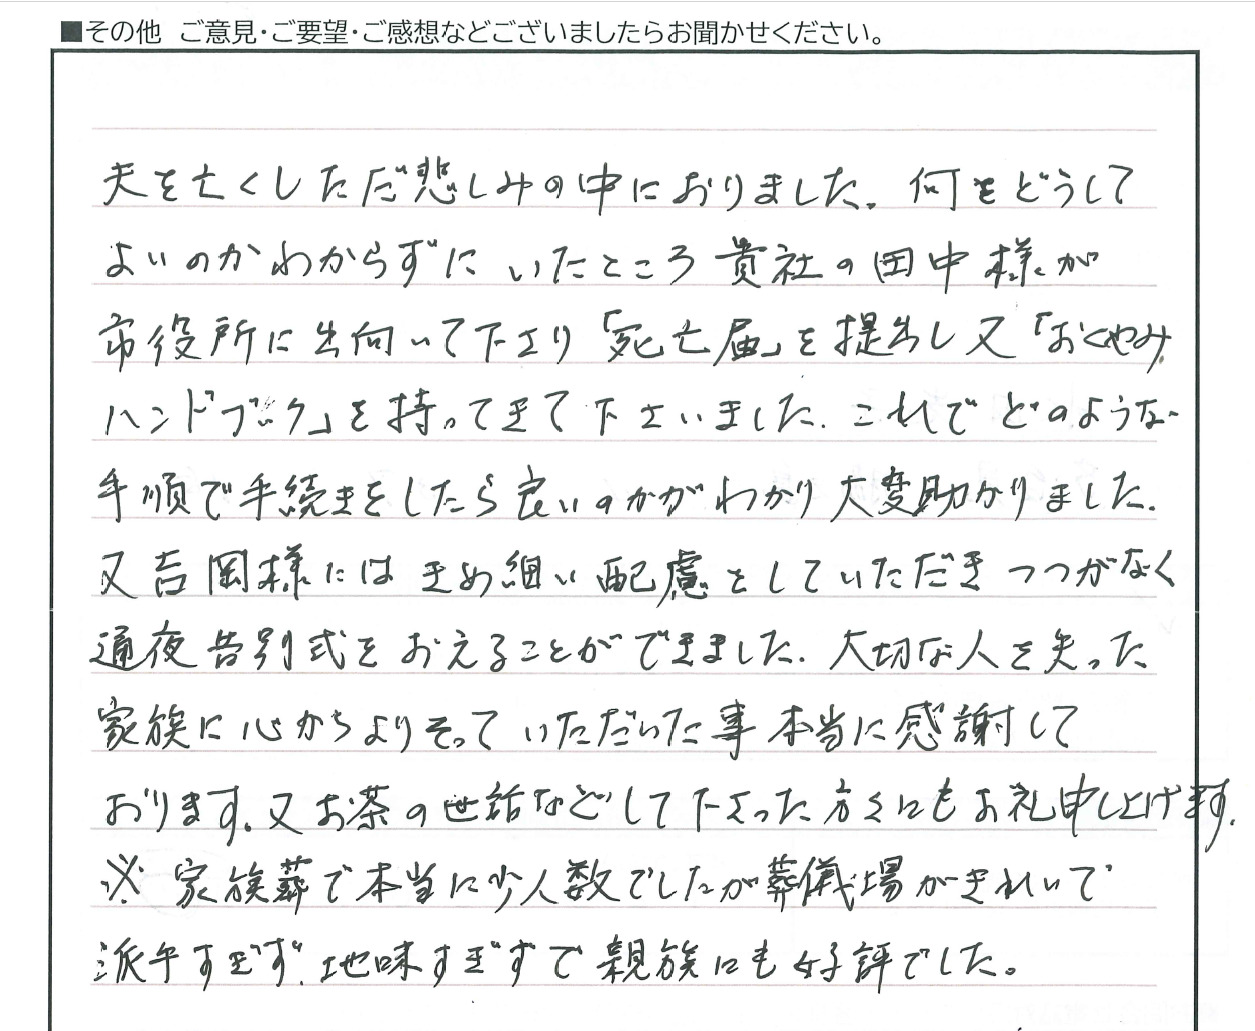 ■その他 ご意見・ご要望・ご感想などございましたらお聞かせください。
夫を亡くしただ悲しみの中におりました。何をどうして
よいのかわからずにいたところ貴社の田中様が
市役所に出向いて下さり「死亡届」を提出し又「おくやみ
ハンドブック」を持ってきて下さいました.これでどのような
手順で手続きをしたら良いのかがわかり大変助かりました.
又吉岡様にはきめ細い配慮をしていただきつつがなく
通夜告別式をおえることができました.大切な人を失った
家族に心からよりそっていただいた事本当に感謝して
おります.又お茶の世話などして下さった方々にもお礼申し上げます.
※家族葬で本当に少人数でしたが葬儀場がきれいで
派手すぎず.地味すぎずで親族にも好評でした。